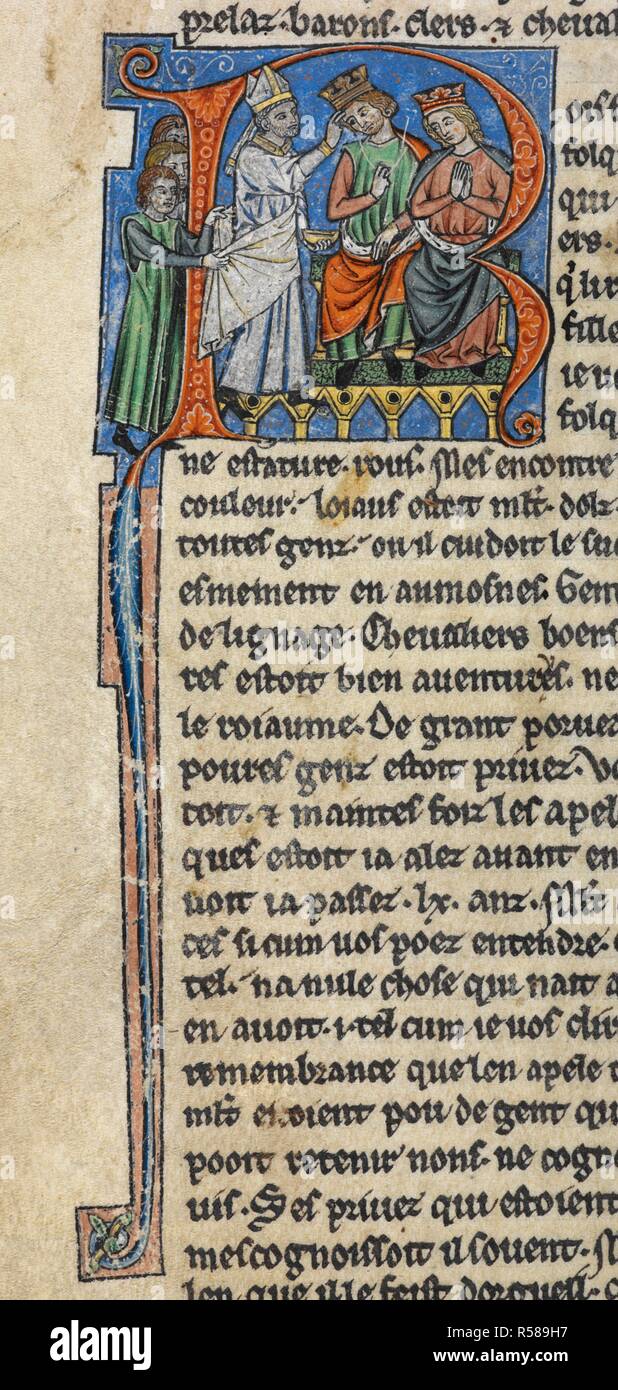 prelaz . barons . clers . ⁊ cheual
folq
qui
ers .
q'lir
fille
ie ue
folq
ne estature . rous . Mes encontre
couleur . loiaus estoit mlt . dolz .
toutes genz . ou il cuidoit le sue
esmement en aumosnes . Gent
de lignage . Cheualiers boens
res estoit bien auentures . ne
le roiaume . De grant poruee
poures genz estoit priuez .
toit . ⁊ maintes foiz les apel
ques estoit ia alez auant en
uoit ia passez . lx . anz .
ces si cum uos poez entendre .
tel . na nule chose qui nait a
en auoit . i . tel cum ie uos dir
remembrance que len apele
mlt enoient pou de gent qu
pooit retenir nons . ne cogn
uis . Ses priuez qui estoient
mescognoissoit il souent .
len que il le feist dorguell .
alamy
Image ID: R589H7
www.alamy.com